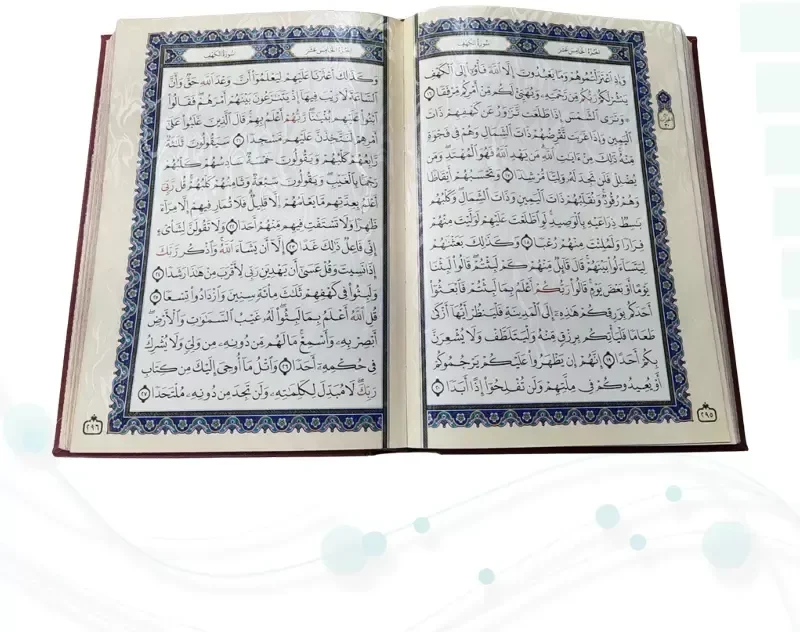 الجزء الخامس عشر
سورة الكهف
وَإِذِ ٱعْتَزَلْتُمُوهُمْ وَمَا يَعْبُدُونَ إِلَّا ٱللَّهَ فَأْوُۥٓا۟ إِلَى ٱلْكَهْفِ
يَنشُرْ لَكُمْ رَبُّكُم مِّن رَّحْمَتِهِۦ وَيُهَيِّئْ لَكُم مِّنْ أَمْرِكُم مِّرْفَقًا ١٦
وَتَرَى ٱلشَّمْسَ إِذَا طَلَعَت تَّزَٰوَرُ عَن كَهْفِهِمْ ذَاتَ
ٱلْيَمِينِ وَإِذَا غَرَبَت تَّقْرِضُهُمْ ذَاتَ ٱلشِّمَالِ وَهُمْ فِى فَجْوَةٍ
مِّنْهُ ذَٰلِكَ مِنْ ءَايَٰتِ ٱللَّهِ مَن يَهْدِ ٱللَّهُ فَهُوَ ٱلْمُهْتَدِ وَمَن
يُضْلِلْ فَلَن تَجِدَ لَهُۥ وَلِيًّا مُّرْشِدًا ١٧ وَتَحْسَبُهُمْ أَيْقَاظًا
وَهُمْ رُقُودٌ وَنُقَلِّبُهُمْ ذَاتَ ٱلْيَمِينِ وَذَاتَ ٱلشِّمَالِ وَكَلْبُهُم
بَٰسِطٌ ذِرَاعَيْهِ بِٱلْوَصِيدِ لَوِ ٱطَّلَعْتَ عَلَيْهِمْ لَوَلَّيْتَ مِنْهُمْ
فِرَارًا وَلَمُلِئْتَ مِنْهُمْ رُعْبًا ١٨ وَكَذَٰلِكَ بَعَثْنَٰهُمْ
لِيَتَسَآءَلُوا۟ بَيْنَهُمْ قَالَ قَآئِلٌ مِّنْهُمْ كَمْ لَبِثْتُمْ قَالُوا۟ لَبِثْنَا
يَوْمًا أَوْ بَعْضَ يَوْمٍ قَالُوا۟ رَبُّكُمْ أَعْلَمُ بِمَا لَبِثْتُمْ فَٱبْعَثُوٓا۟
أَحَدَكُم بِوَرِقِكُمْ هَٰذِهِۦٓ إِلَى ٱلْمَدِينَةِ فَلْيَنظُرْ أَيُّهَآ أَزْكَىٰ
طَعَامًا فَلْيَأْتِكُم بِرِزْقٍ مِّنْهُ وَلْيَتَلَطَّفْ وَلَا يُشْعِرَنَّ
بِكُمْ أَحَدًا ١٩ إِنَّهُمْ إِن يَظْهَرُوا۟ عَلَيْكُمْ يَرْجُمُوكُمْ
أَوْ يُعِيدُوكُمْ فِى مِلَّتِهِمْ وَلَن تُفْلِحُوٓا۟ إِذًا أَبَدًا ٢٠
٢٩٥
الجزء الخامس عشر
سورة الكهف
وَكَذَٰلِكَ أَعْثَرْنَا عَلَيْهِمْ لِيَعْلَمُوٓا۟ أَنَّ وَعْدَ ٱللَّهِ حَقٌّ وَأَنَّ
ٱلسَّاعَةَ لَا رَيْبَ فِيهَآ إِذْ يَتَنَٰزَعُونَ بَيْنَهُمْ أَمْرَهُمْ فَقَالُوا۟
ٱبْنُوا۟ عَلَيْهِم بُنْيَٰنًا رَّبُّهُمْ أَعْلَمُ بِهِمْ قَالَ ٱلَّذِينَ غَلَبُوا۟ عَلَىٰٓ
أَمْرِهِمْ لَنَتَّخِذَنَّ عَلَيْهِم مَّسْجِدًا ٢١ سَيَقُولُونَ ثَلَٰثَةٌ
رَّابِعُهُمْ كَلْبُهُمْ وَيَقُولُونَ خَمْسَةٌ سَادِسُهُمْ كَلْبُهُمْ
رَجْمًۢا بِٱلْغَيْبِ وَيَقُولُونَ سَبْعَةٌ وَثَامِنُهُمْ كَلْبُهُمْ قُل رَّبِّىٓ
أَعْلَمُ بِعِدَّتِهِم مَّا يَعْلَمُهُمْ إِلَّا قَلِيلٌ فَلَا تُمَارِ فِيهِمْ إِلَّا مِرَآءً
ظَٰهِرًا وَلَا تَسْتَفْتِ فِيهِم مِّنْهُمْ أَحَدًا ٢٢ وَلَا تَقُولَنَّ لِشَا۟ىْءٍ
إِنِّى فَاعِلٌ ذَٰلِكَ غَدًا ٢٣ إِلَّآ أَن يَشَآءَ ٱللَّهُ وَٱذْكُر رَّبَّكَ
إِذَا نَسِيتَ وَقُلْ عَسَىٰٓ أَن يَهْدِيَنِ رَبِّى لِأَقْرَبَ مِنْ هَٰذَا رَشَدًا ٢٤
وَلَبِثُوا۟ فِى كَهْفِهِمْ ثَلَٰثَ مِا۟ئَةٍ سِنِينَ وَٱزْدَادُوا۟ تِسْعًا ٢٥
قُلِ ٱللَّهُ أَعْلَمُ بِمَا لَبِثُوا۟ لَهُۥ غَيْبُ ٱلسَّمَٰوَٰتِ وَٱلْأَرْضِ
أَبْصِرْ بِهِۦ وَأَسْمِعْ مَا لَهُم مِّن دُونِهِۦ مِن وَلِىٍّ وَلَا يُشْرِكُ
فِى حُكْمِهِۦٓ أَحَدًا ٢٦ وَٱتْلُ مَآ أُوحِىَ إِلَيْكَ مِن كِتَابِ
رَبِّكَ لَا مُبَدِّلَ لِكَلِمَٰتِهِۦ وَلَن تَجِدَ مِن دُونِهِۦ مُلْتَحَدًا ٢٧
٢٩٦